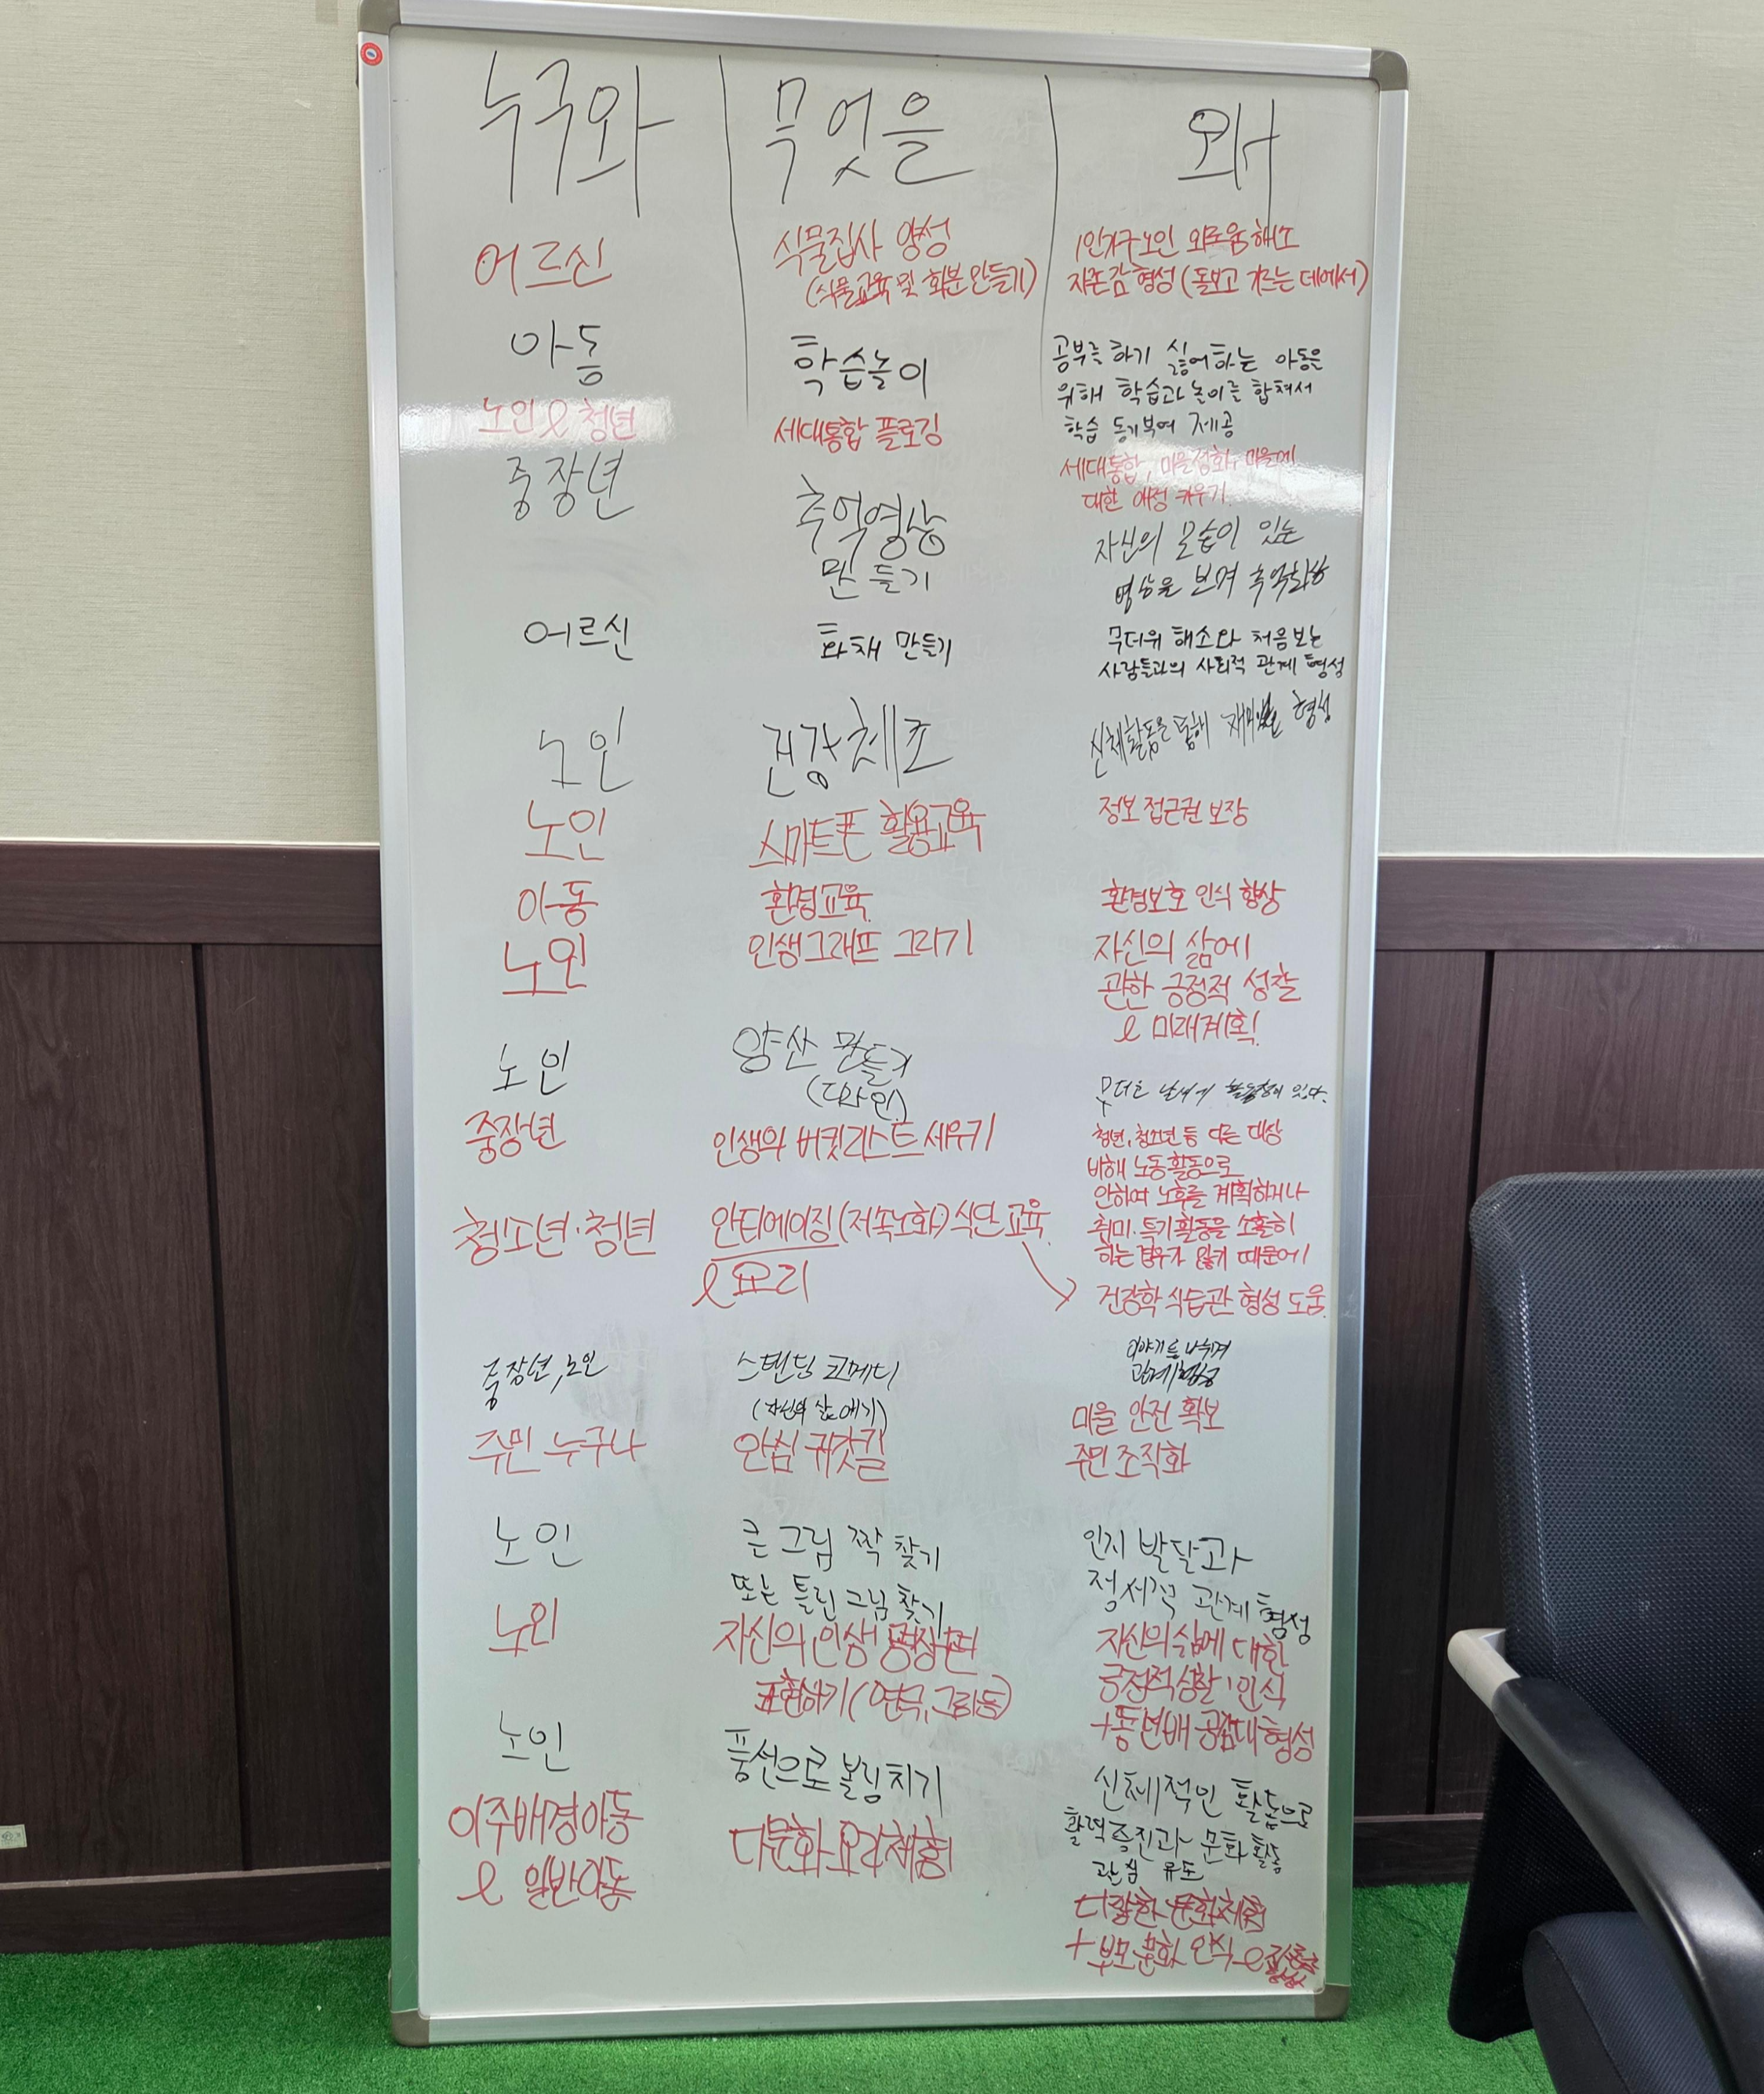 누구와 무엇을 왜
어르신
식물집사 양성
(식물교육 및 화분 만들기)
1인가구노인 외로움 해소
자존감 형성 (돌보고 기르는 데에서)
아동
학습놀이
공부를 하기 싫어하는 아동을
위해 학습과 놀이를 합쳐서
학습 동기부여 제공
노인 & 청년
세대통합 플로깅
세대통합, 마을정화, 마을에
대한 애정 키우기
중장년
추억영상
만들기
자신의 모습이 있는
영상을 보며 추억회상
어르신
화채 만들기
무더위 해소와 처음보는
사람들과의 사회적 관계 형성
노인
건강체조
신체활동을 통해 형성
노인
스마트폰 활용교육
정보 접근권 보장
아동
환경교육
환경보호 인식 향상
노인
인생그래프 그리기
자신의 삶에
관한 긍정적 성찰
& 미래계획
노인
양산 만들기
(디자인)
무더운 날씨에 있다.
중장년
인생의 버킷리스트 세우기
청년, 청소년 등 다른 대상
비해 노동활동으로
인하여 노후를 계획하거나
취미·특기활동을 소홀히
하는 경우가 많기 때문에
청소년·청년
안티에이징 (저속노화) 식단 교육
& 요리
건강학 식습관 형성 도움
중장년, 노인
스탠딩 코메디
(자신의 삶 얘기)
이야기를 나누며
관계형성
주민 누구나
안심 귀갓길
마을 안전 확보
주민 조직화
노인
큰 그림 짝 찾기
또는 틀린그림 찾기
인지 발달과
정서적 관계 형성
노인
자신의 인생 명장면
표현하기 (연극, 그림 등)
자신의 삶에 대한
긍정적 성찰, 인식
+ 동년배 공감대 형성
노인
풍선으로 볼링치기
신체적인 활동으로
활력 증진과 문화 활동
관심 유도
이주배경아동
& 일반아동
다문화 요리체험
다양한 문화체험
+ 부모 문화 인식 &